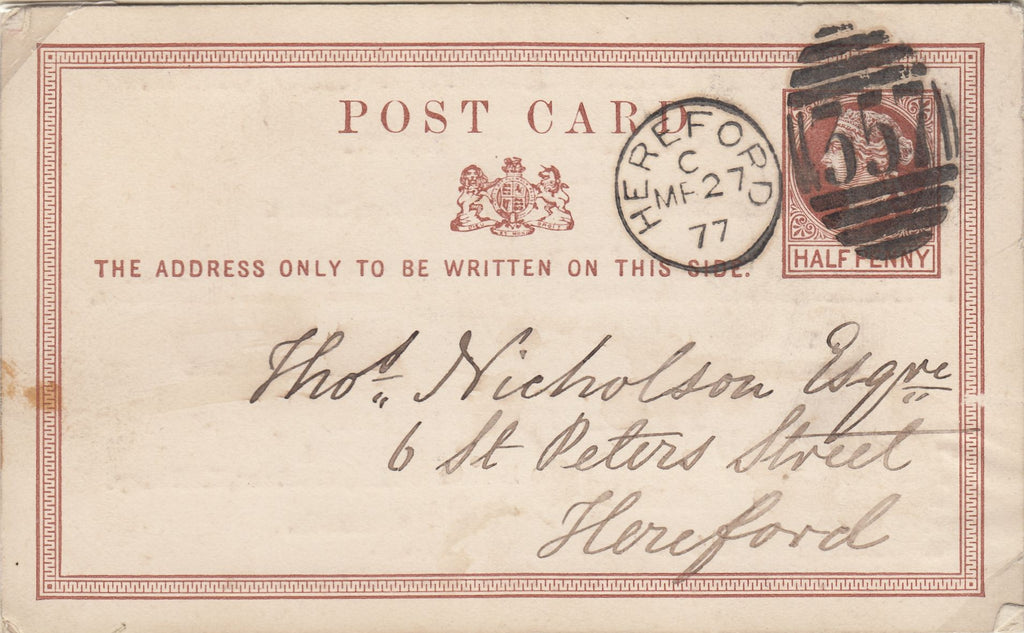 POST CARD
HEREFORD
C
MR 27
77
357
HALF PENNY
THE ADDRESS ONLY TO BE WRITTEN ON THIS SIDE.
Thos. Nicholson Esqre
6 St Peters Street
Hereford